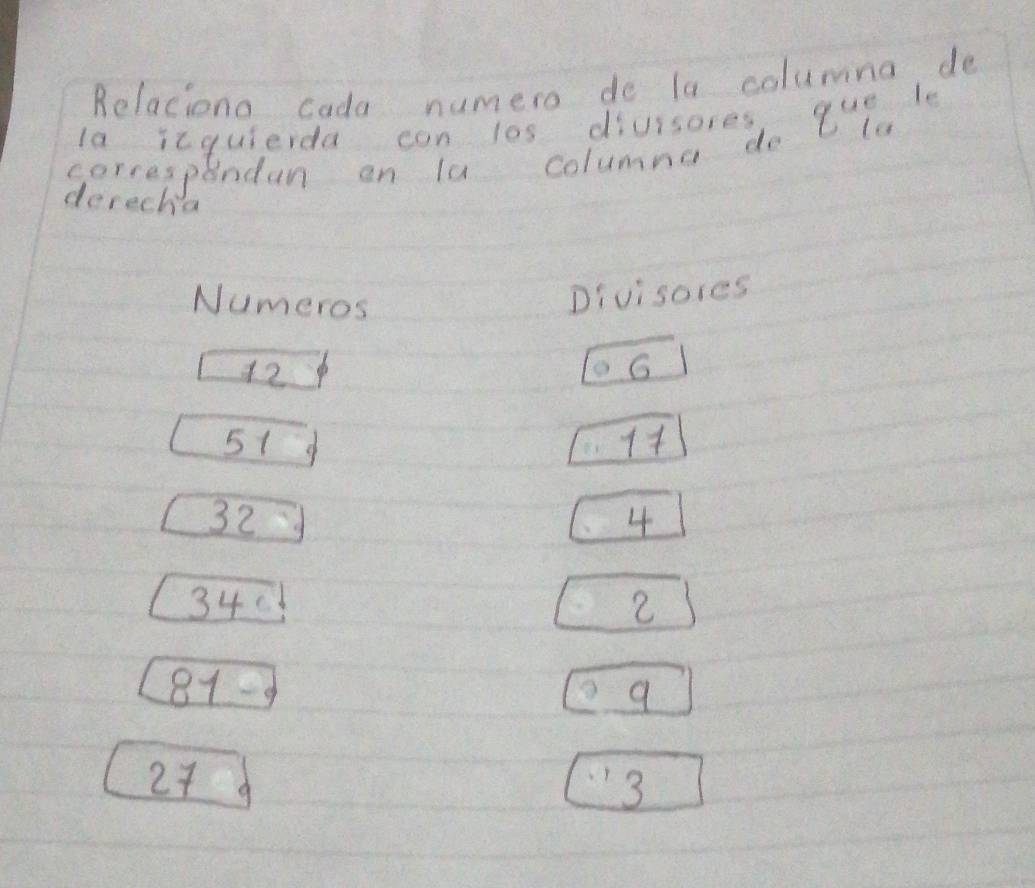 Relaciono cada numero de la columna de
la izquierda con los divisores que le
correspondan en la columna de la
derecha
Numeros
Divisores
12
6
51
17
32
4
34
2
81
9
27
3